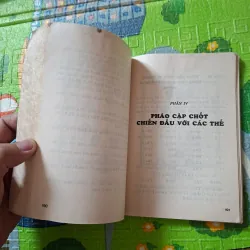 PHẦN IV
PHÁO CẶP CHỐT
CHIẾN ĐẤU VỚI CÁC THẾ